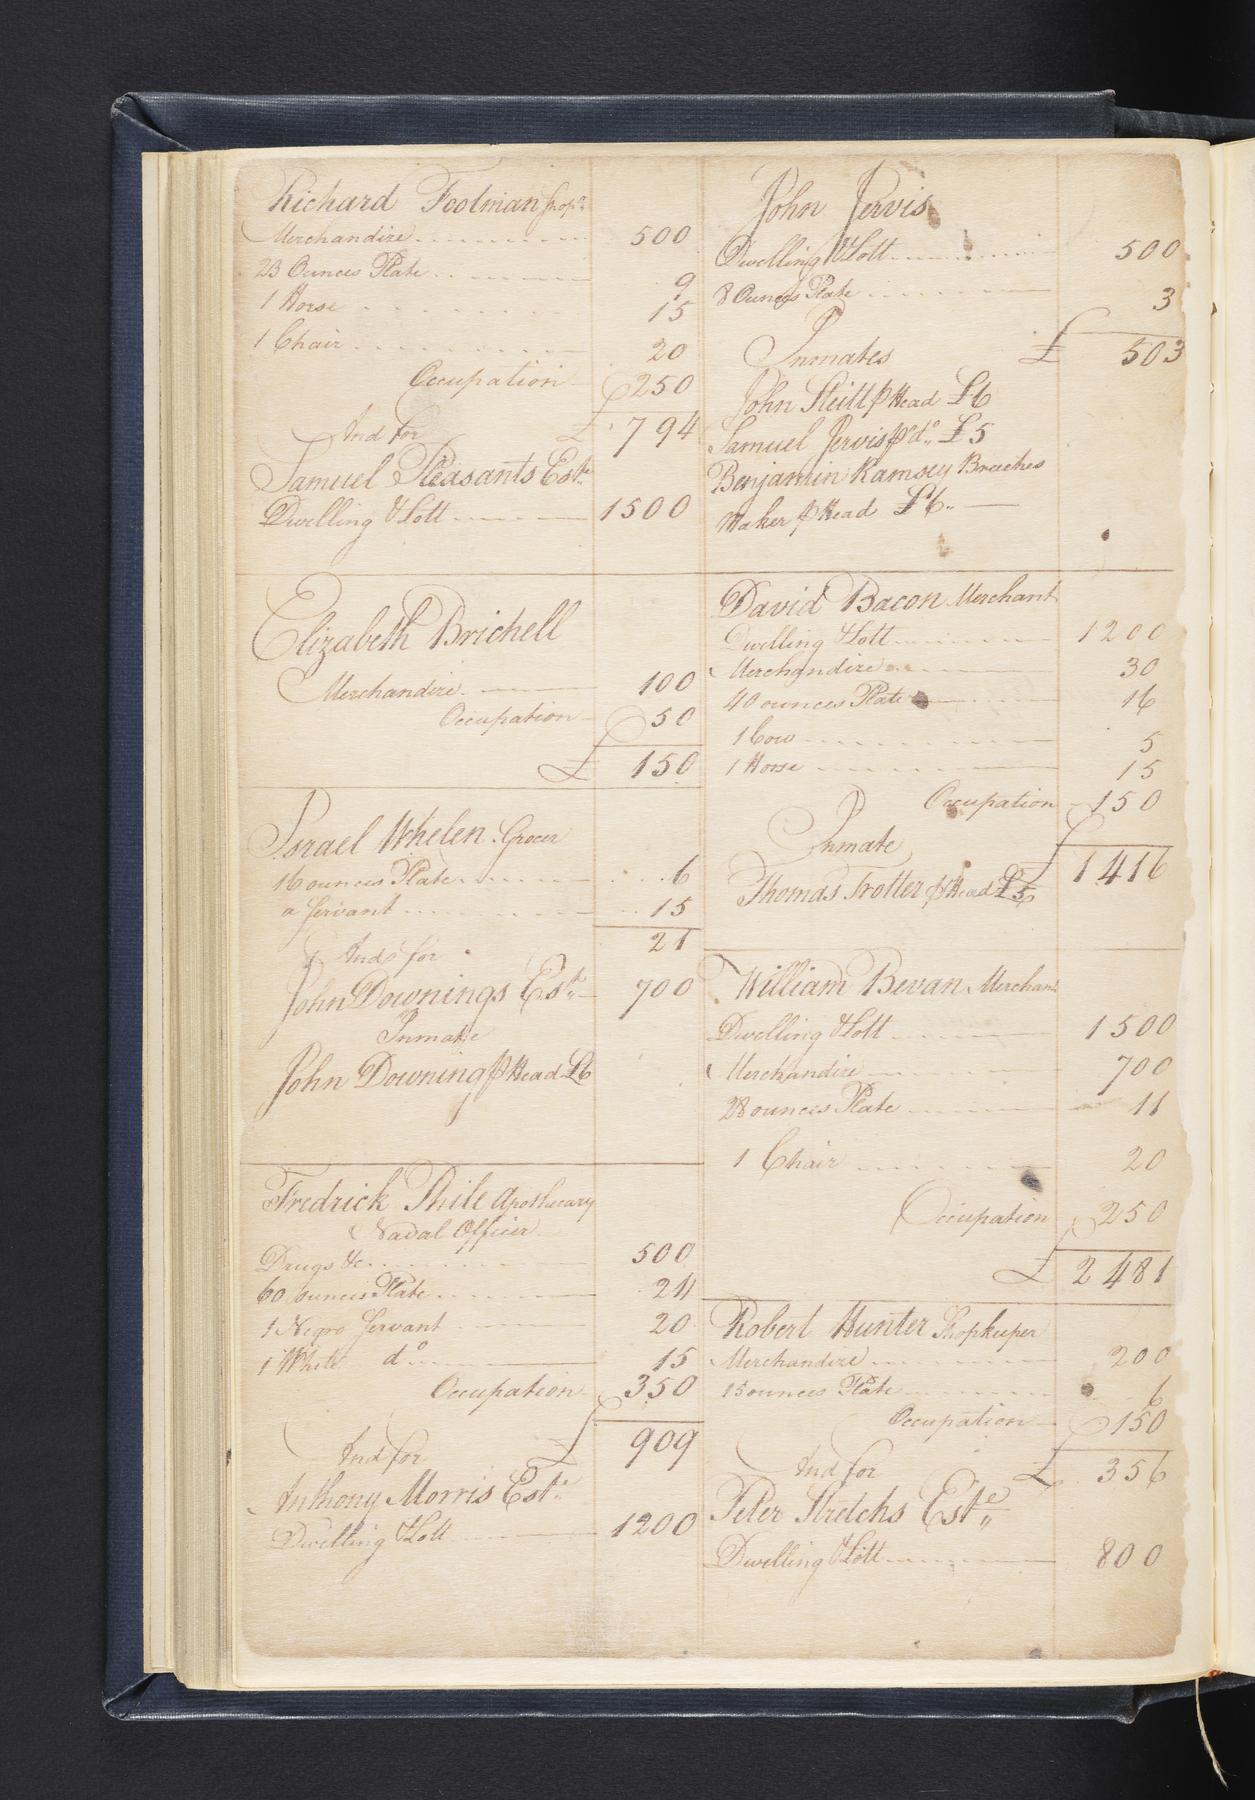 Richard Footman
Merchandize 500
23 Ounces Plate 9
1 Horse 15
1 Chair 20
Occupation 250
And for £ 794
Samuel Pleasants Est.
Dwelling & Lott 1500
Elizabeth Brichell
Merchandize 100
Occupation 50
£ 150
Israel Whelen Grocer
16 ounces Plate 6
a Servant 15
21
And for
John Downings Est. 700
Inmate
John Downing P Head £6
Fredrick Phile Apothecary
Naval Officer
Drugs &c 500
60 ounces Plate 24
1 Negro Servant 20
1 White do 15
Occupation 350
£ 909
And for
Anthony Morris Est.
Dwelling & Lott 1200
John Jervis
Dwelling & Lott 500
8 Ounces Plate 3
Inmates £ 503
John P Head £6
Samuel Jervis P do £5
Benjamin Ramsey Breeches
Maker P Head £6
David Bacon Merchant
Dwelling & Lott 1200
Merchandize 30
40 ounces Plate 16
1 Cow 5
1 Horse 15
Occupation 150
Inmate £ 1416
Thomas Trotter P Head £5
William Bevan Merchan
Dwelling & Lott 1500
Merchandize 700
28 ounces Plate 11
1 Chair 20
Occupation 250
£ 2481
Robert Hunter Shopkeeper
Merchandize 200
15 ounces Plate 6
Occupation 150
And for £ 356
Peter Stretchs Este
Dwelling & Lott 800